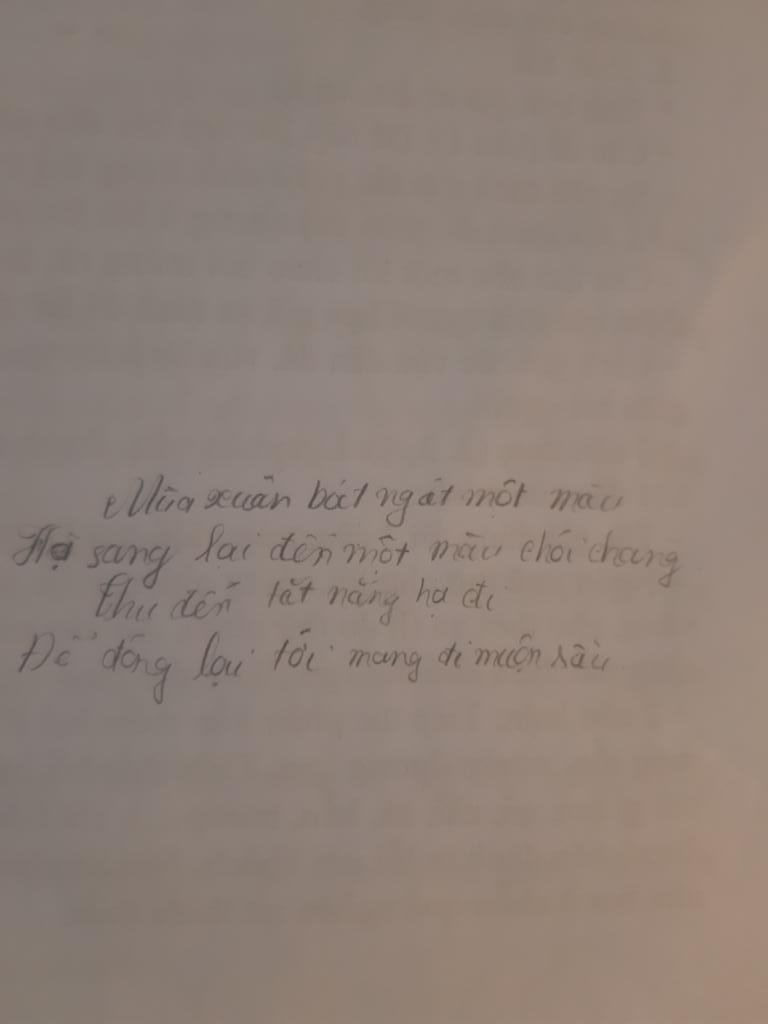 Mùa xuân bát ngát một màu
Hạ sang lại đến một màu chói chang
Thu đến tắt nắng hạ đi
Để đông lại tới mang đi muộn sầu